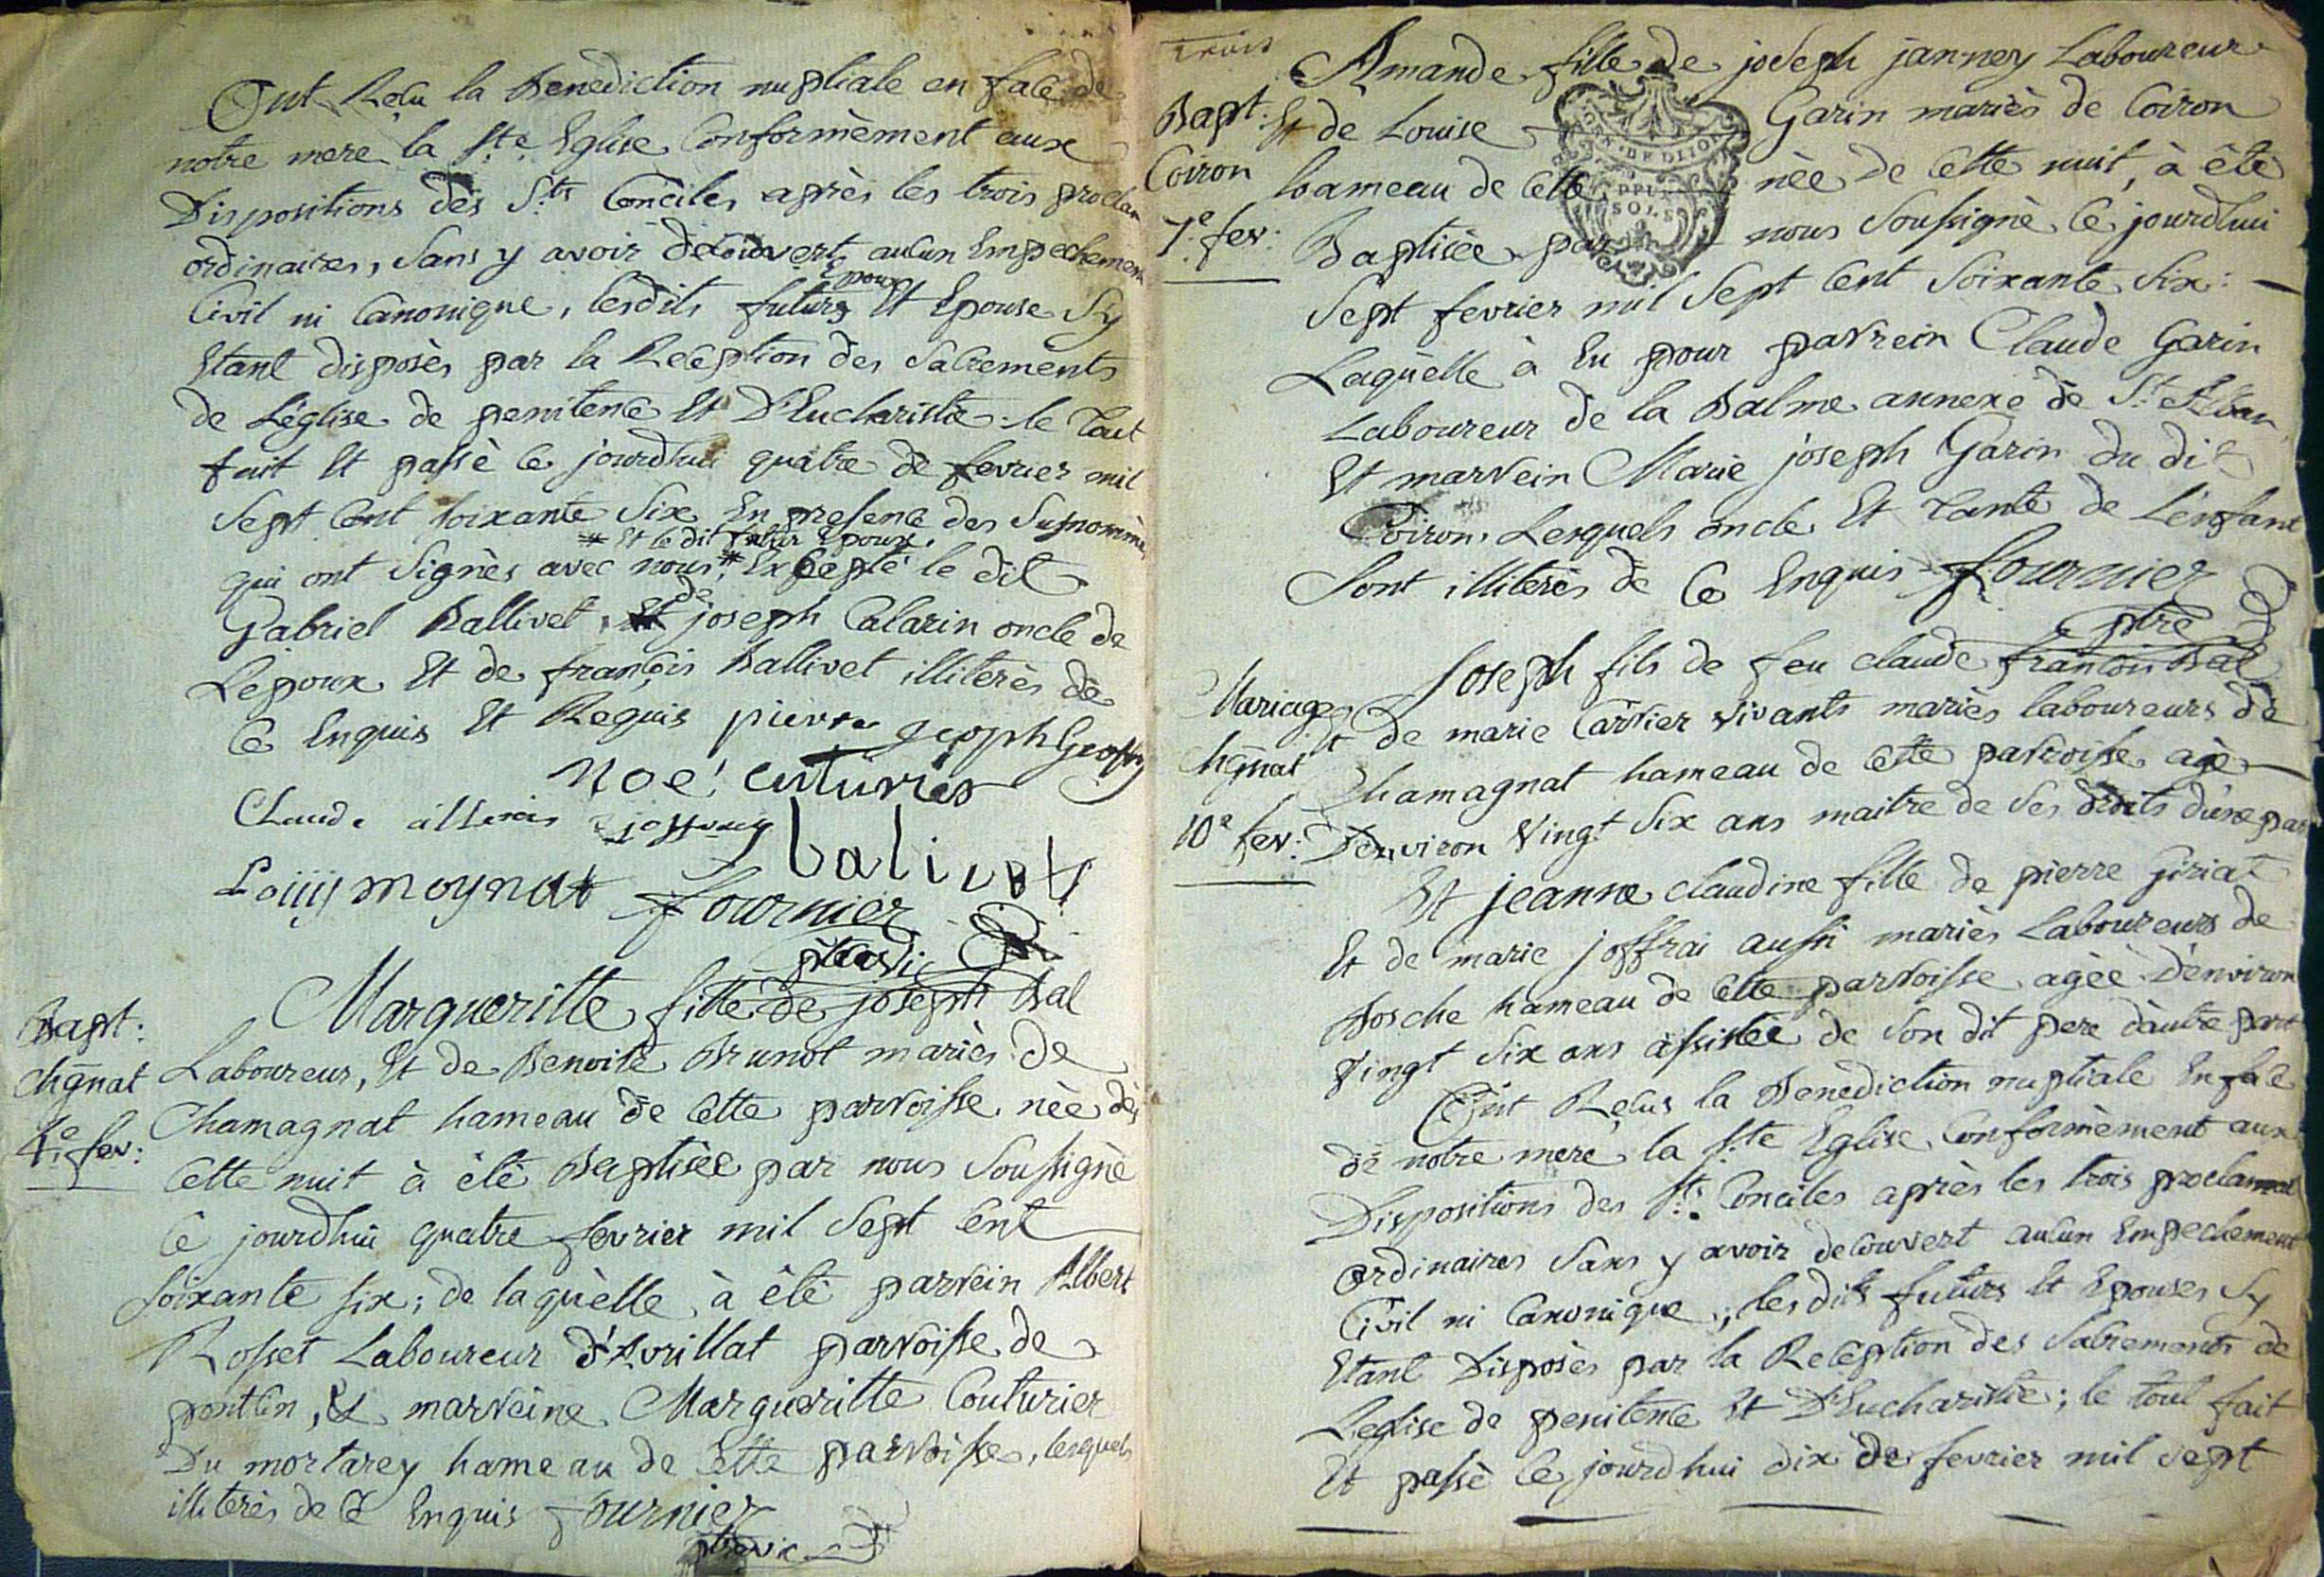 Out Reçu la Benediction nuptiale en face de
notre mere la Ste Eglise Conformèment aux
Dispositions dès Sts Conciles après les trois proclam
ordinaires, Sans y avoir decouvert aucun Empechement
Epoux
Civil ni Canonique, lesdits futurs Et Epouse Sy
Etant disposès par la Reception des Sacrements
de Léglise de penitence Et D'Eucharistie le tout
fait Et passè ce jourdhui quatre de fevrier mil
Sept Cent soixante Six En presence des Susnommès
# Et le dit futur Epoux.
qui ont Signès avec nous # Excepté le dit
Gabriel Ballivet de joseph Calarin oncle de
Lepoux Et de françois Ballivet illiterès de
ce Enquis Et Requis pierre
noe' cuturier
Claude joffray
balivet
moynat fournier
Bapt:
Chgnat
4e fev:
Margueritte fille de joseph Bal
Laboureur, Et de Benoite Brunot mariès de
Chamagnat hameau de Cette parroisse née dès
Cette nuit à étè Baptisèe par nous Soussignè
Ce jourdhui quatre fevrier mil Sept Cent
soixante six; de laquèlle à étè parrein Albert
Rosset Laboureur d'Avrillat parroisse de
pontlin, Et marreine Margueritte Couturier
Du mortarey hameau de Cette parroisse, lesquels
illiterès de Ce Enquis fournier
trois
Bapt:
Coiron
7e fev:
Amande fille de joseph janney Laboureur
Et de Louise Garin mariès de Coiron
hameau de Cette nèe de Cette nuit, à étè
Baptisèe par nous Soussignè Ce jourdhui
Sept fevrier mil Sept Cent Soixante Six:
Laquèlle à Eu pour parrein Claude Garin
Laboureur de la Balme annexe de St Alban
Et marrein Marie joseph Garin du dit
Coiron, Lesquels oncle Et tante de Lenfant
Sont illiterès de Ce Enquis fournier
ptre
Mariage
Chgnat
10e fev:
Joseph fils de feu claude françois Bal
Et de marie Cartier vivants mariès laboureurs de
Chamagnat hameau de Cette parroisse agè
Denviron Vingt Six ans maitre de Ses droits d'une part
Et jeanne claudine fille de pierre Giriat
Et de marie joffrai aussi mariès Laboureurs de
Bosche hameau de Cette parroisse agèe d'environ
Vingt Six ans assistèe de Son dit pere d'autre part
Ont Reçus la Benediction nuptiale En face
de notre mere la Ste Eglise Conformèment aux
Dispositions des Sts Conciles après les trois proclamat
ordinaires Sans y avoir decouvert aucun Empechement
Civil ni Canonique, les dits futurs Et Epouses Sy
Etant Disposès par la Reception des Sacrements de
Leglise de penitence Et D'Eucharistie; le tout fait
Et passè ce jourdhui dix de fevrier mil Sept